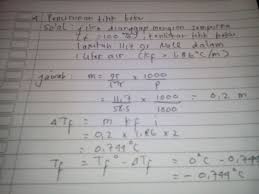 * Penurunan titik beku
Soal : jika dianggap mengion sempurna
tentukan titik beku
larutan 11,7 gr NaCl dalam
1 liter air (Kf = 1,86 °C/m)
jawab : m = gr/Mr x 1000/P
= 11,7/58,5 x 1000/1000 = 0,2 m
ΔTf = m kf i
= 0,2 x 1,86 x 2
= 0,744 °C
Tf = Tf° - ΔTf = 0°C - 0,744
= - 0,744 °C